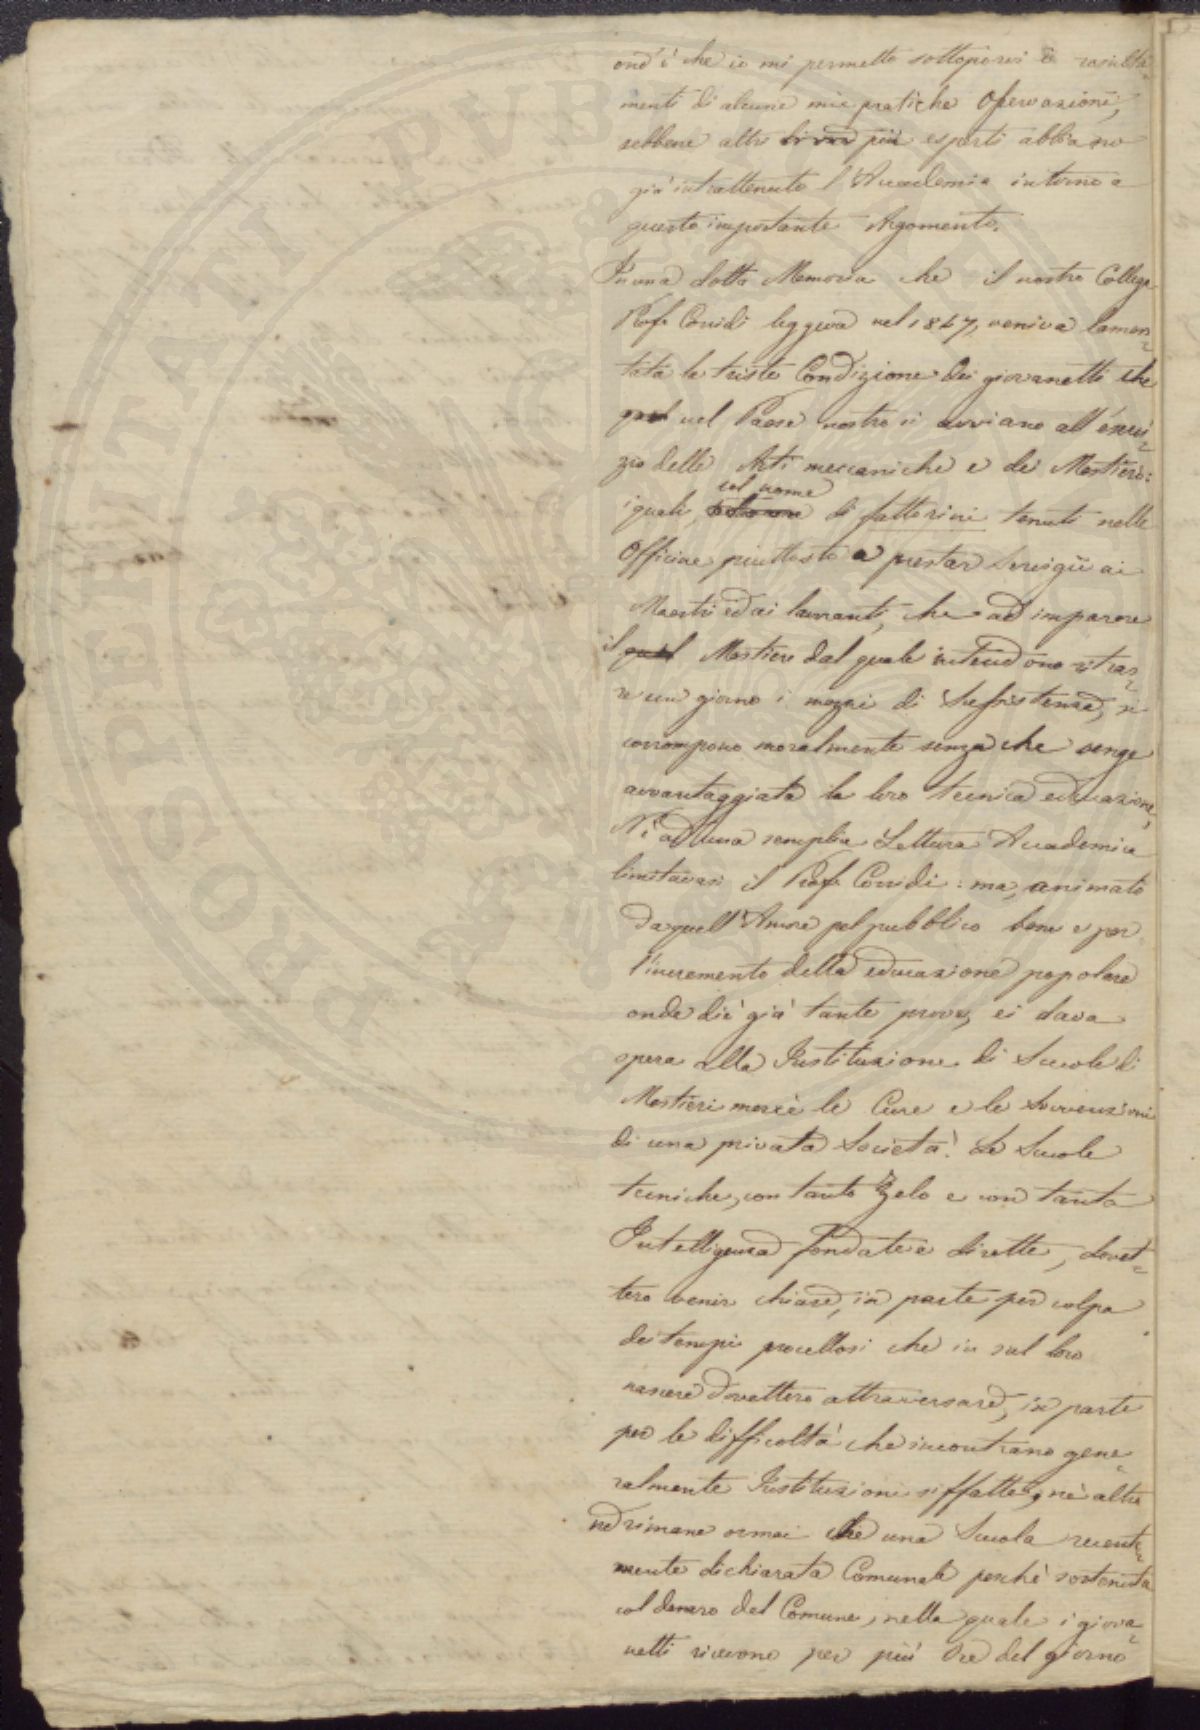 ond'è che io mi permetto sottoporvi i resulta-
menti di alcune mie pratiche Osservazioni,
sebbene altri di me più esperti abbiano
già intrattenuto l'Accademia intorno a
questo importante Argomento.
In una dotta Memoria che il nostro Collega
Prof. Corridi leggeva nel 1847, veniva lamen=
tata la triste Condizione dei giovanetti che
nel Paese nostro si avviano all'eserci=
zio delle Arti meccaniche e dei Mestieri:
col nome
i quali, di fattorini tenuti nelle
Officine piuttosto a prestar Servigii ai
Maestri ed ai lavoranti, che ad imparare
il Mestiere dal quale intendono ritrar=
re un giorno i mezzi di Sussistenza, si
corrompono moralmente senza che venga
avvantaggiata la loro tecnica educazione,
Nè ad una semplice Lettura Accademica
limitavasi il Prof. Corridi: ma, animato
da quell'Amore pel pubblico bene e per
l'incremento della educazione popolare
onde diè già tante prove, ei dava
opera alla Instituzione di Scuole di
Mestieri mercè le Cure e le Sovvenzioni
di una privata Società. Le Scuole
tecniche, con tanto Zelo e con tanta
Intelligenza fondate e dirette, dovet=
tero venir chiuse, in parte per colpa
dei tempi procellosi che in sul loro
nascere dovettero attraversare, in parte
per le difficoltà che incontrano gene=
ralmente Instituzioni siffatte, nè altro
ne rimane ormai che una Scuola recente=
mente dichiarata Comunale perchè sostenuta
col denaro del Comune, nella quale i giova=
netti ricevono per più Ore del giorno